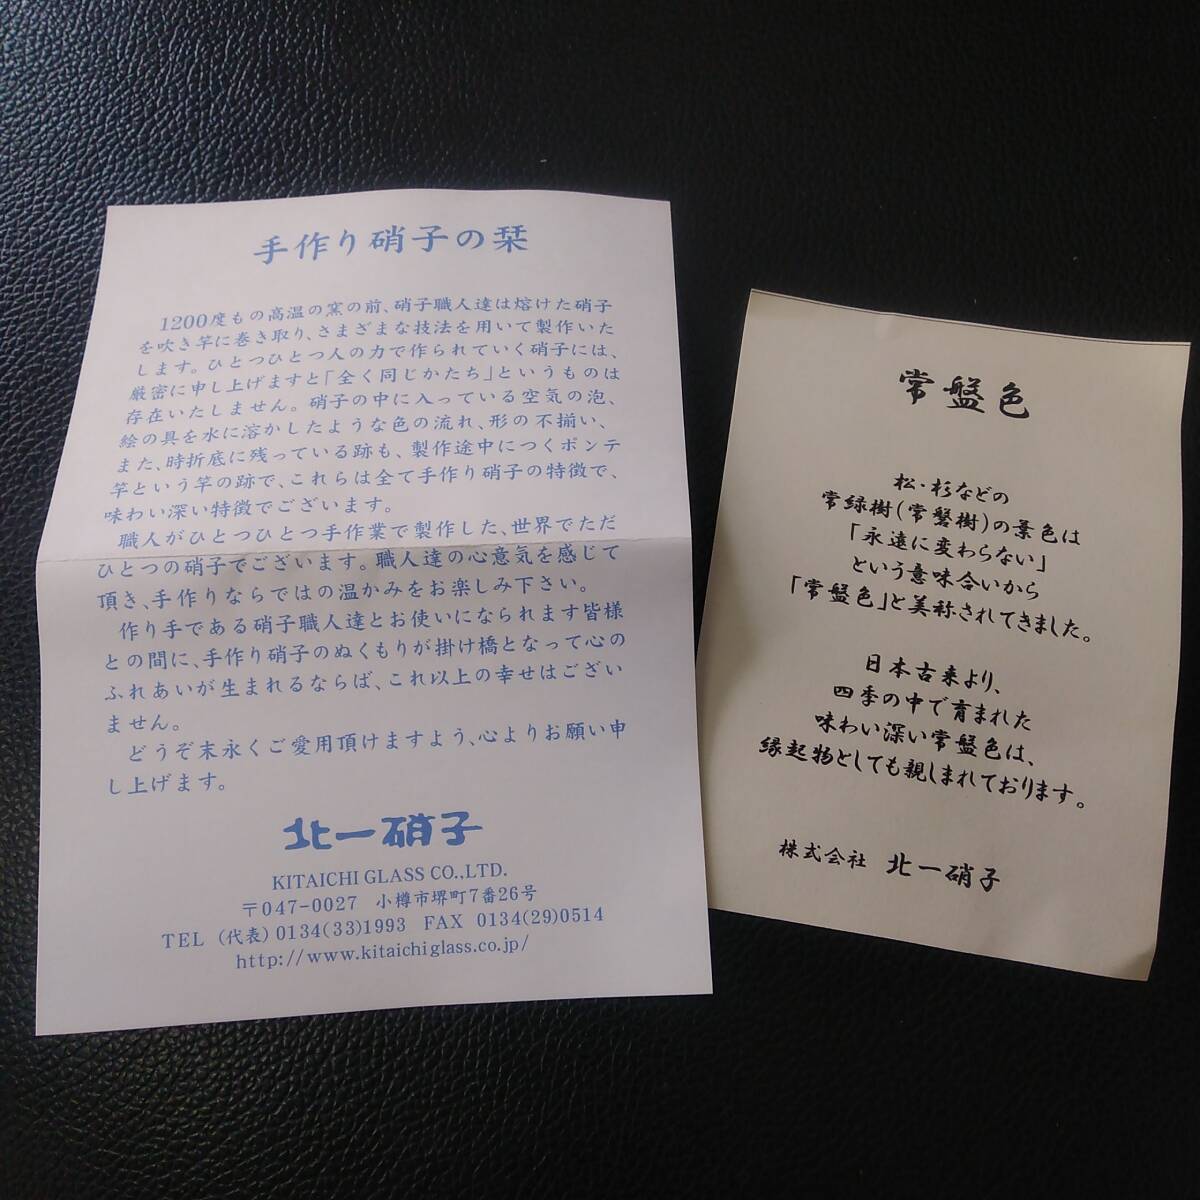 手作り硝子の栞
1200度もの高温の窯の前、硝子職人達は熔けた硝子
を吹き竿に巻き取り、さまざまな技法を用いて製作いた
します。ひとつひとつ人の力で作られていく硝子には、
厳密に申し上げますと「全く同じかたち」というものは
存在いたしません。硝子の中に入っている空気の泡、
絵の具を水に溶かしたような色の流れ、形の不揃い、
また、時折底に残っている跡も、製作途中につくポンテ
竿という竿の跡で、これらは全て手作り硝子の特徴で、
味わい深い特徴でございます。
職人がひとつひとつ手作業で製作した、世界でただ
ひとつの硝子でございます。職人達の心意気を感じて
頂き、手作りならではの温かみをお楽しみ下さい。
作り手である硝子職人達とお使いになられます皆様
との間に、手作り硝子のぬくもりが掛け橋となって心の
ふれあいが生まれるならば、これ以上の幸せはござい
ません。
どうぞ末永くご愛用頂けますよう、心よりお願い申
し上げます。
北一硝子
KITAICHI GLASS CO.,LTD.
〒047-0027 小樽市堺町7番26号
TEL (代表) 0134(33)1993 FAX 0134(29)0514
http://www.kitaichiglass.co.jp/
常盤色
松・杉などの
常緑樹(常盤樹)の景色は
「永遠に変わらない」
という意味合いから
「常盤色」と美称されてきました。
日本古来より、
四季の中で育まれた
味わい深い常盤色は、
縁起物としても親しまれております。
株式会社 北一硝子